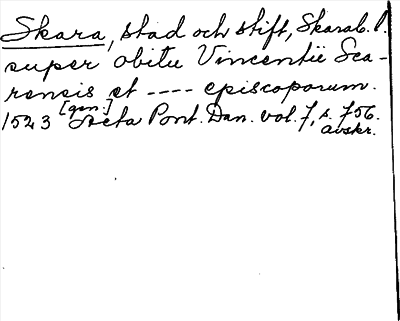 Skara, stad och stift, Skarab. l.
super obitu Vincentii Sca-
rensis et ---- episcoporum.
[gen.]
1523 Acta Pont. Dan. vol. 7, s. 756.
avskr.